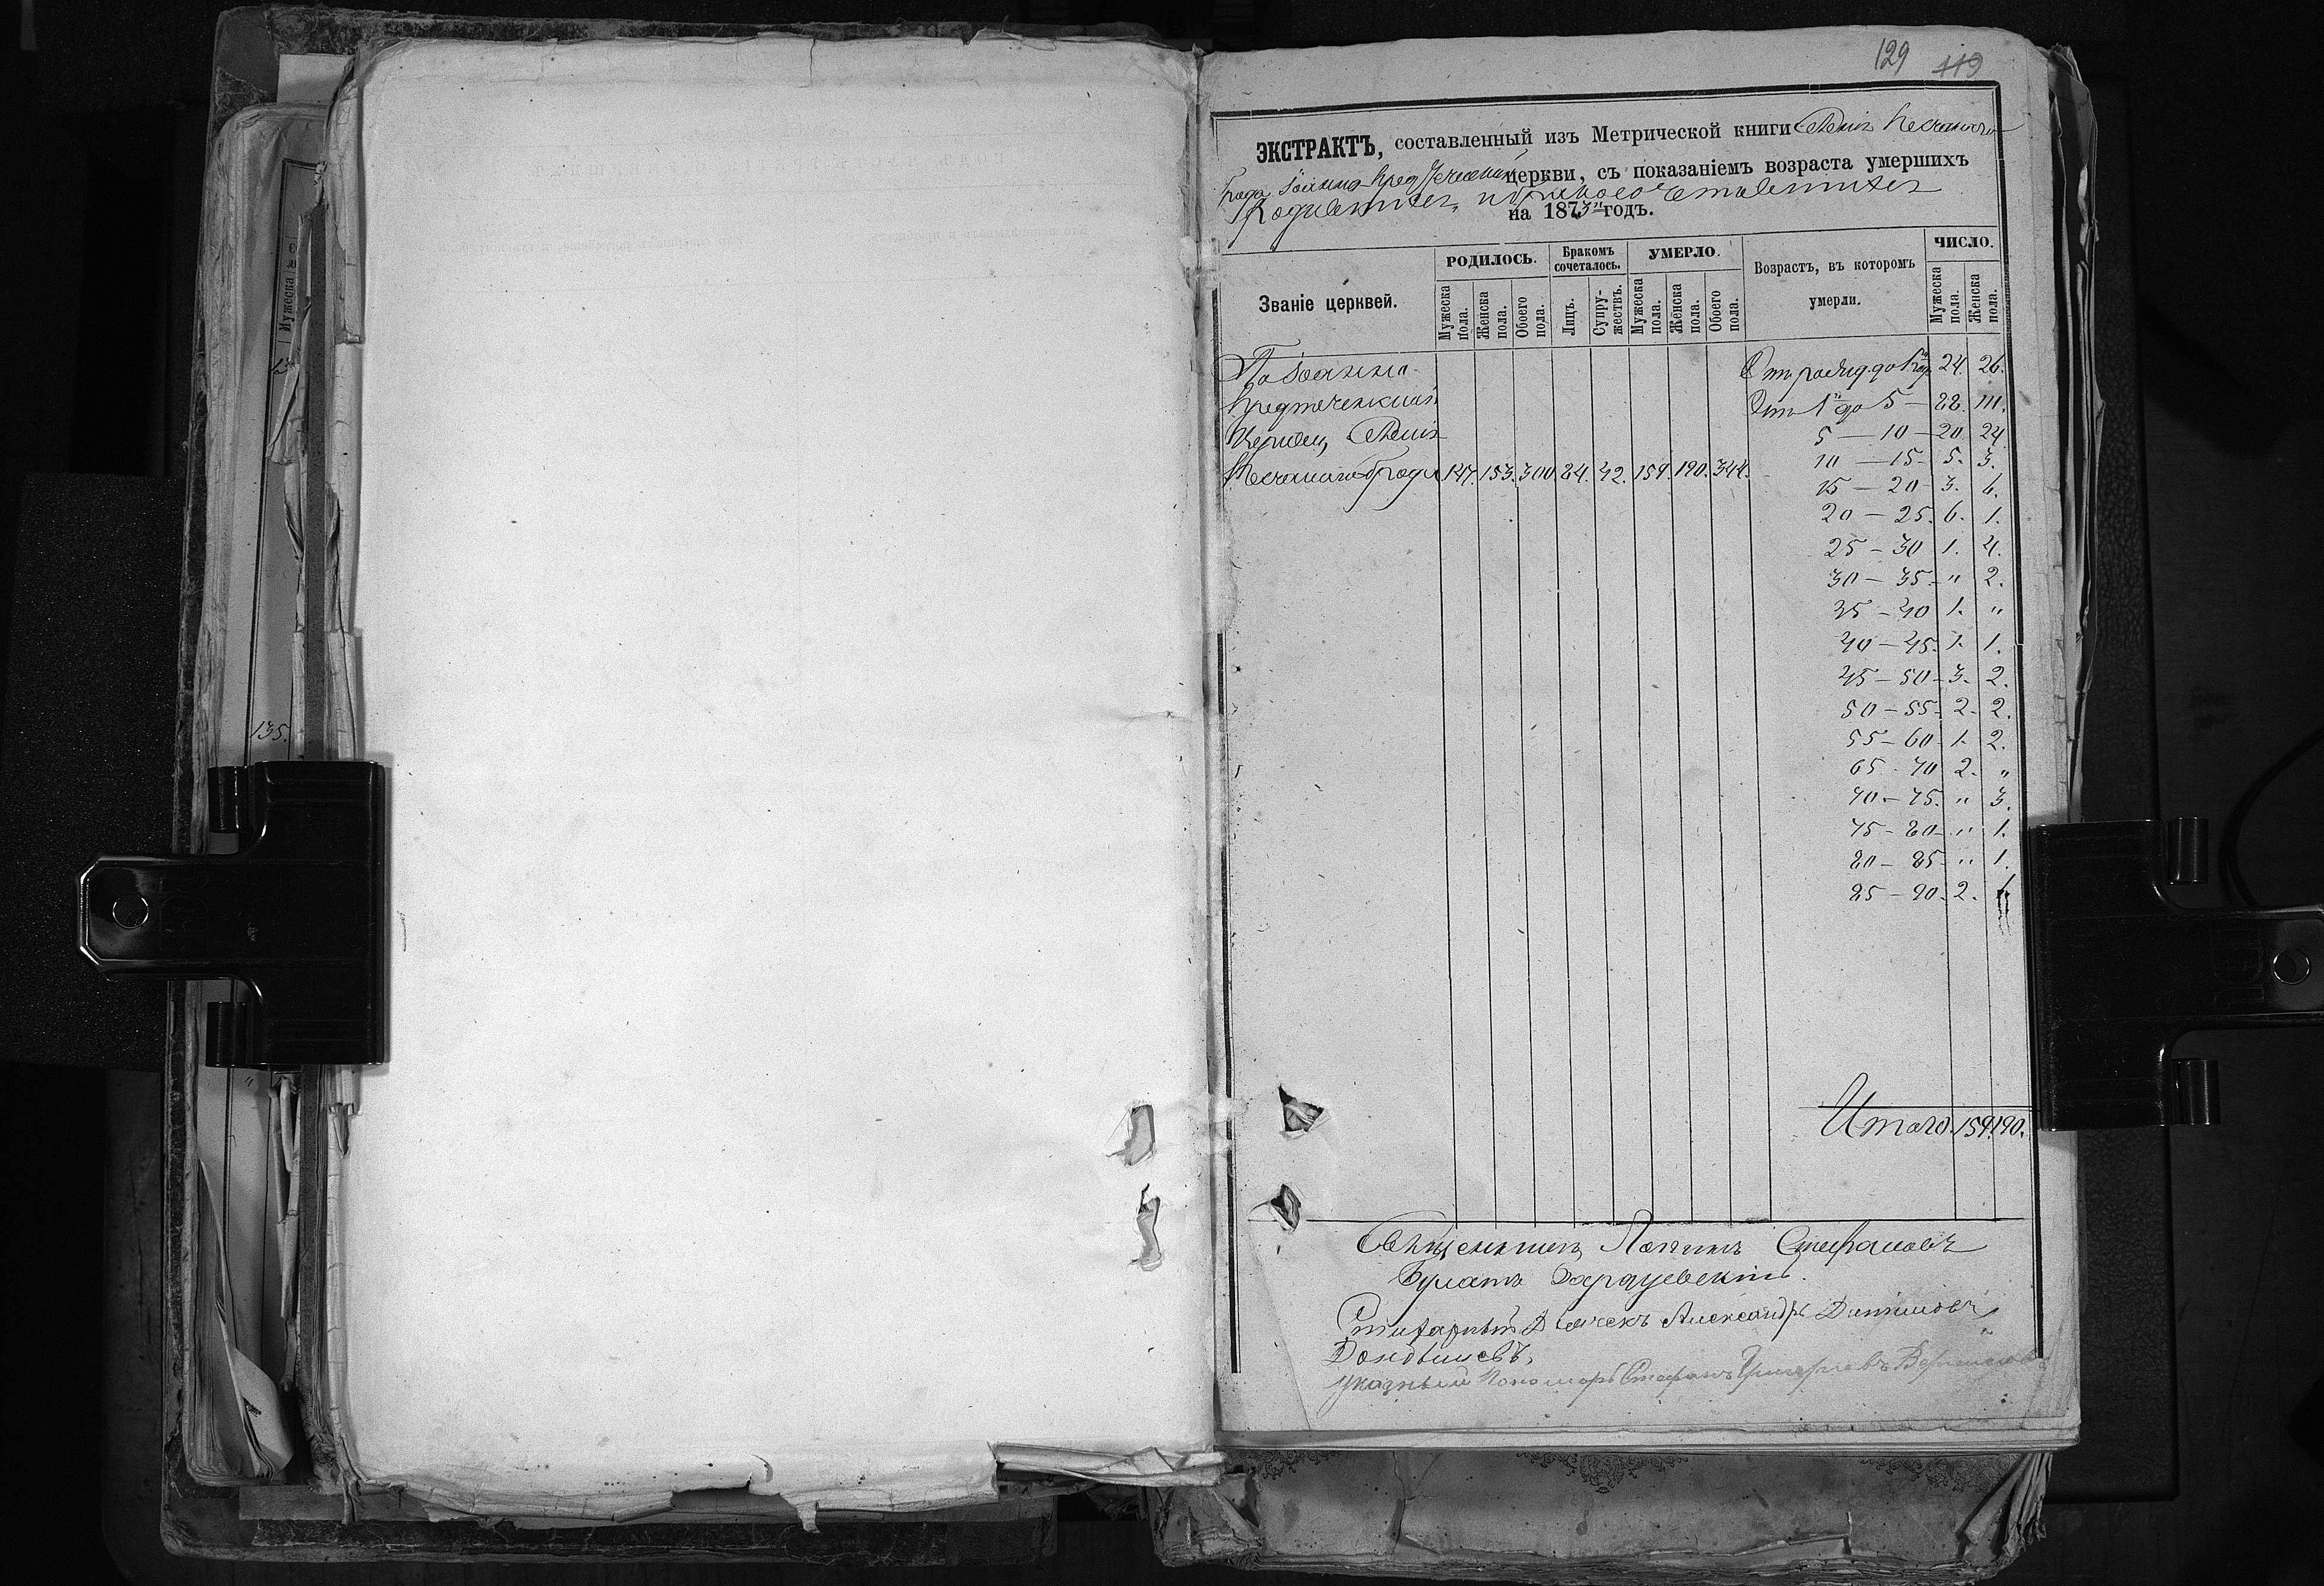 129 119
ЭКСТРАКТЪ, составленный изъ Метрической книги Селенія Песчанаго
Брода Іоанно-Предтеченской церкви, съ показаніемъ возраста умершихъ
на 1873й годъ.
Званіе церквей.
РОДИЛОСЬ.
Мужеска пола.
Женска пола.
Обоего пола.
Бракомъ сочеталось.
Лицъ.
Супружествъ.
УМЕРЛО.
Мужеска пола.
Женска пола.
Обоего пола.
Возрастъ, въ которомъ умерли.
ЧИСЛО.
Мужеска пола.
Женска пола.
По Іоанно-
Предтеченской
Церкви, Селенія
Песчаного Брода 147. 153. 300. 84. 42. 154. 190. 344.
Отъ рожд. до 1го 24. 26.
Отъ 1го до 5 — 111.
5 — 10 — 20. 24.
10 — 15 — 5. 3.
15 — 20 — 3. 6.
20 — 25. 6. 1.
25 — 30 1. 4.
30 — 35 — " 2.
35 — 40 1. "
40 — 45. 1. 1.
45 — 50 — 3. 2.
50 — 55 — 2. 2.
55 — 60 — 1. 2.
65 - 70 2. "
70 — 75. " 3.
75 — 80 — " 1.
80 — 85 — " 1.
85 — 90. 2.
Итого. 154. 190.
Священникъ Стефановъ
Стихарный Дьячекъ Александръ
Указный Пономарь Стефанъ Григорьевъ
135.
Мужеска